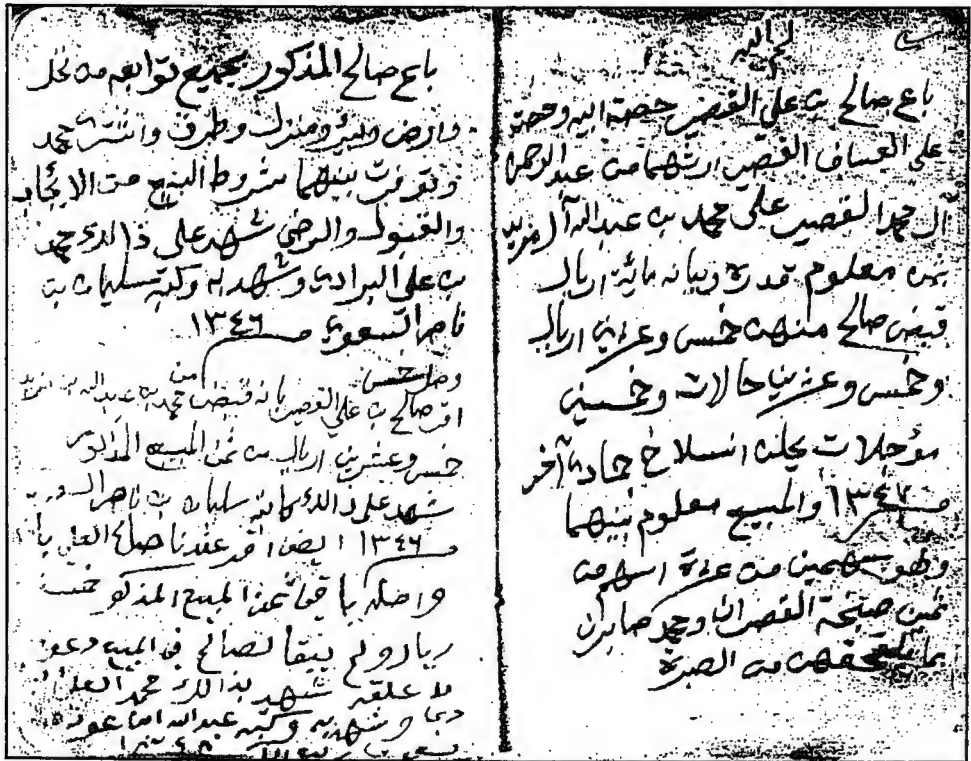 الحمد لله
باع صالح بن علي القصير حصة ابيه وحصة
علي العساف القصير ارثهما من عبدالرحمن
ال حمد القصير على محمد بن عبدالله آل مزيد
بثمن معلوم قدره وبيانه مائة اريال
قبض صالح منهن خمس وعشرين اريال
وخمس وعشرين حالات وخمسين
مؤجلات يحلن انسلاخ جمادى آخر
١٣٤٧ والمبيع معلوم بينهما
وهو سهمين من عشرة اسهم من
ثمن صبخة القصران ومحمد صابر
بما يلحقهن من الصبرة
باع صالح المذكور بجميع توابعه من نخل
وارض وبئر ومنزل وطرف واشترى محمد
وتوفرت بينهما شروط البيع من الايجاب
والقبول والرضى شهد على ذالك حمد
بن علي البرادي وشهد به وكتبه سليمان بن
ناصر السعوي ١٣٤٦
اقر صالح بن علي القصير بانه قبض من محمد بن عبدالله بن مزيد
خمس وعشرين اريال من ثمن المبيع المذكور
شهد على ذالك كاتبه سليمان بن ناصر
١٣٤٦ ايضا اقر عندنا صالح العلي بأن
واصله باقي ثمن المبيع المذكور خمسين
ريال ولم يبقا لصالح في المبيع دعوى
ولا علقه شهد بذالك محمد
وشهد به وكتبه عبدالله